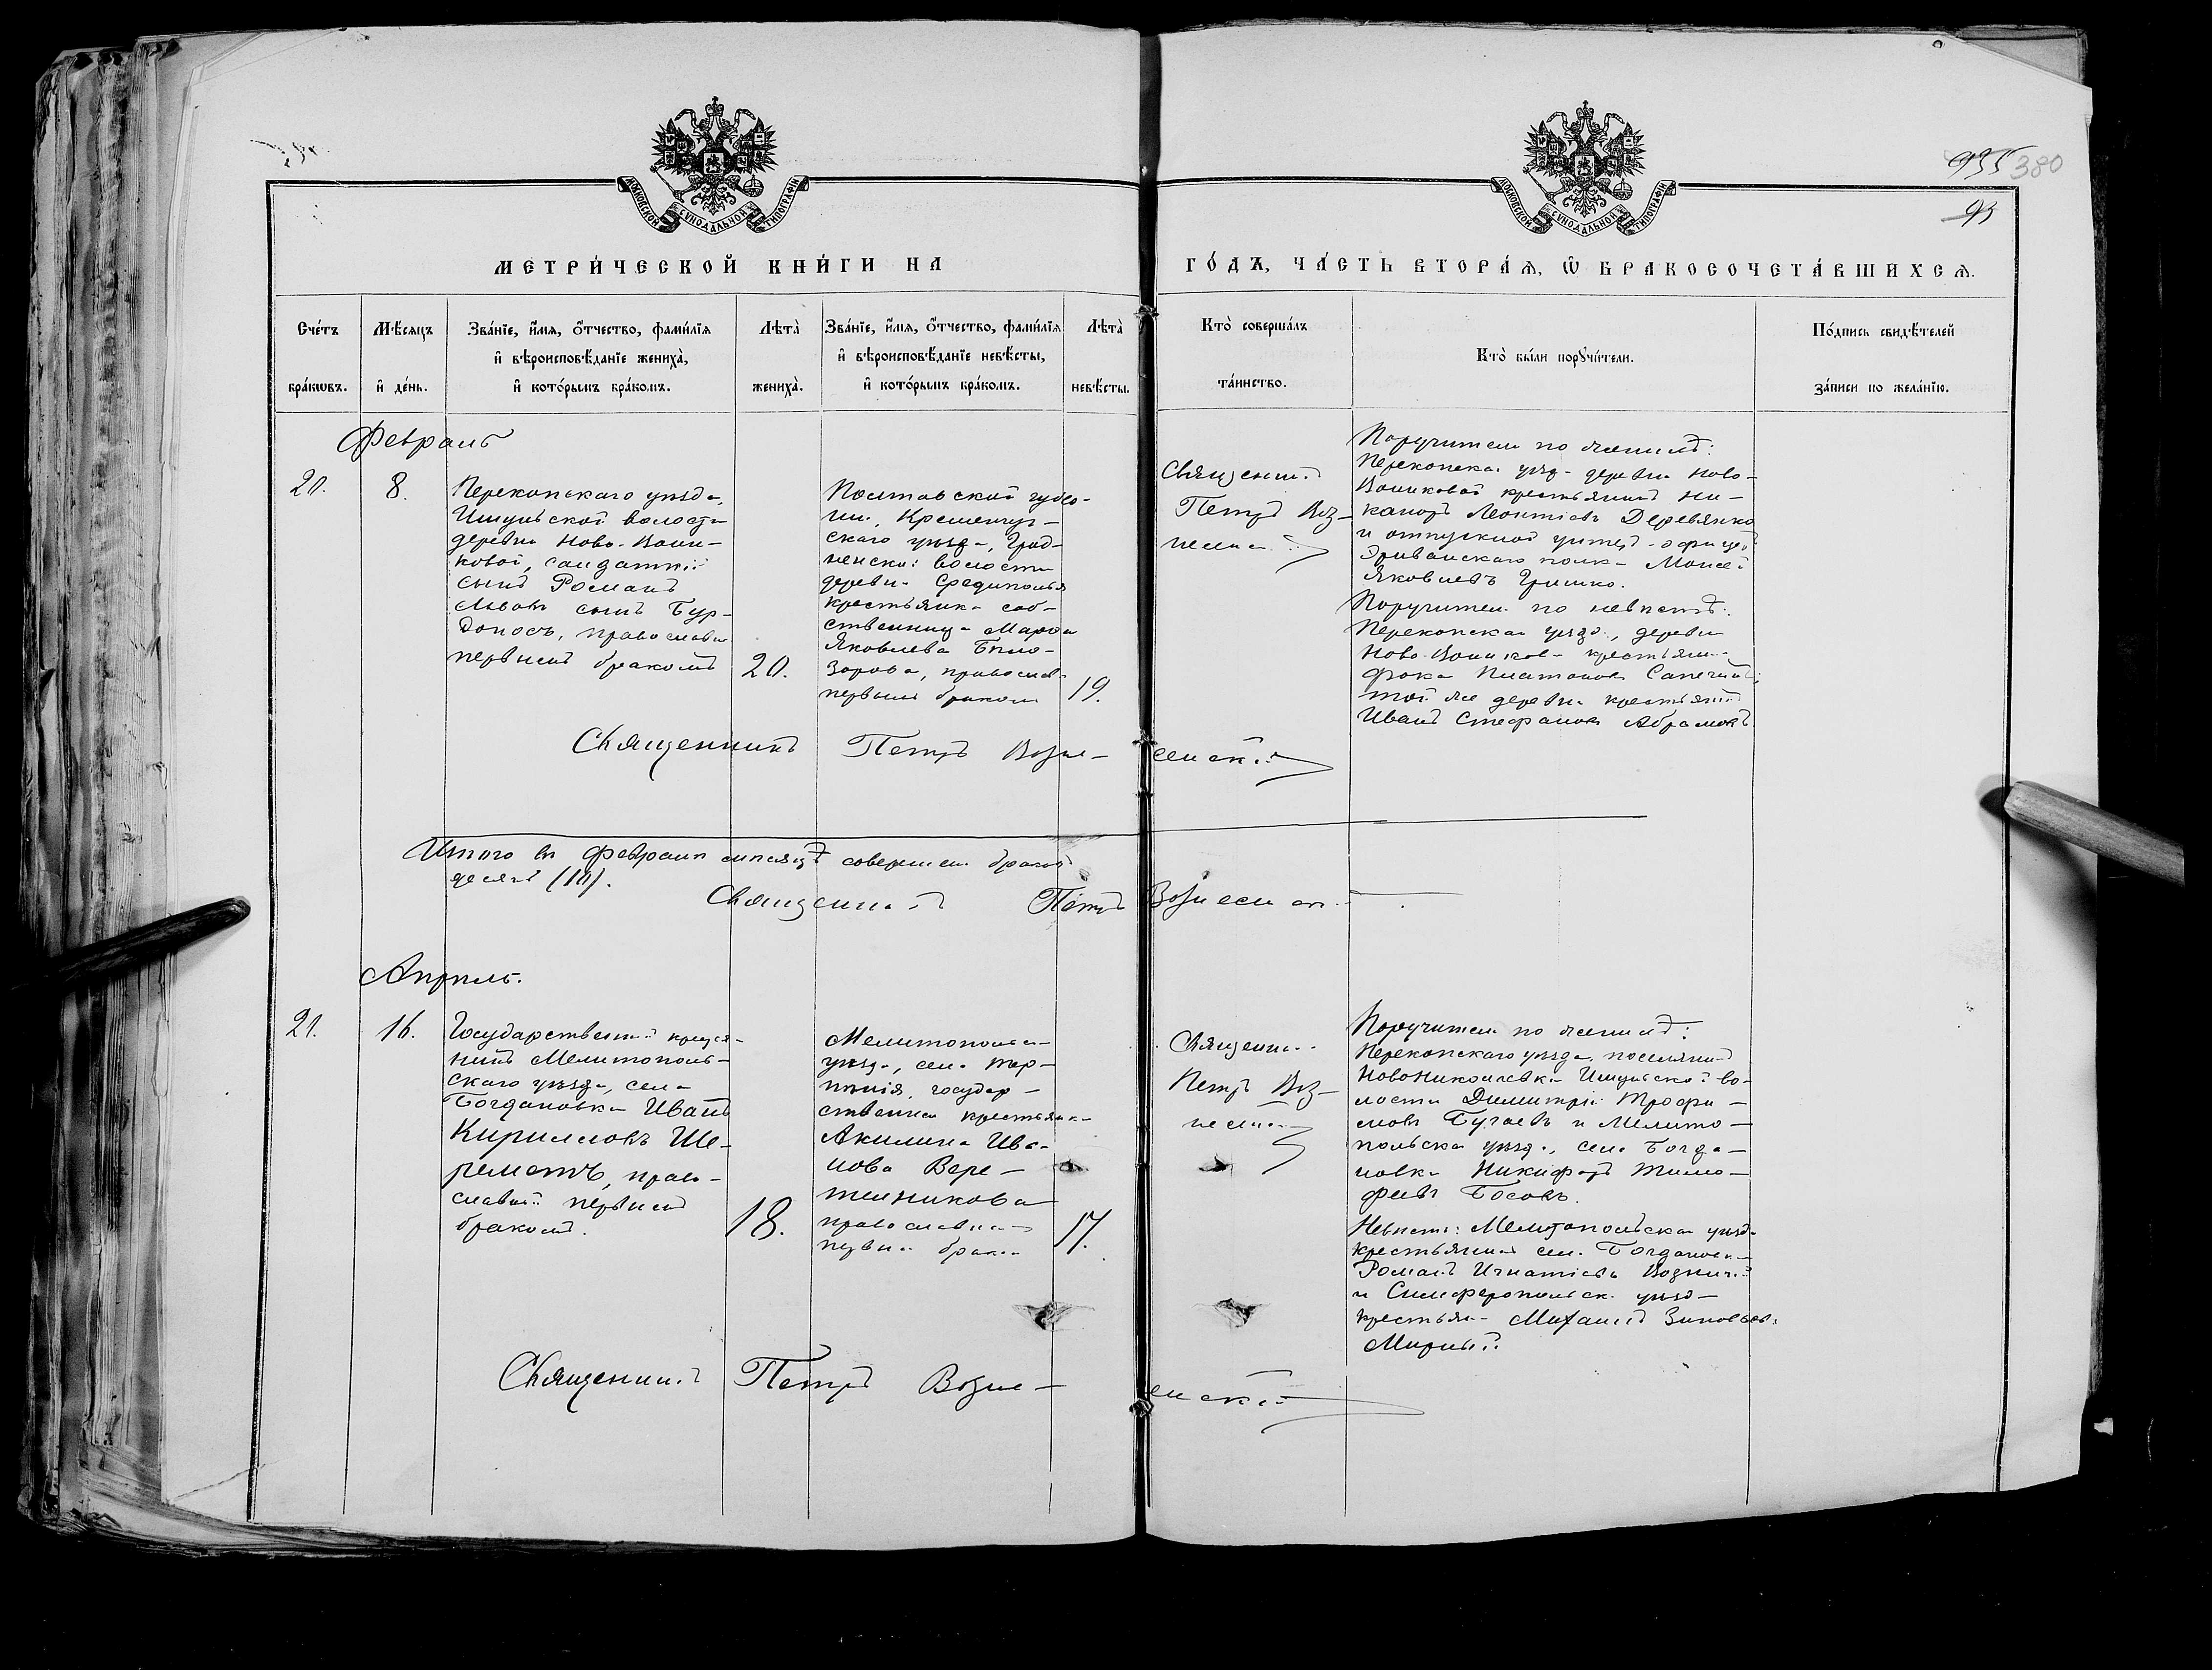 МОСКОВСКОЙ СѴНОДАЛЬНОЙ ТИПОГРАФІИ
МОСКОВСКОЙ СѴНОДАЛЬНОЙ ТИПОГРАФІИ
935 380
95
МЕТРИ́ЧЕСКОЙ КНИ́ГИ НА
ГО́ДЪ, ЧА́СТЬ ВТОРА́Ѧ, Ѽ БРАКОСОЧЕТА́ВШИХСѦ.
Сче́тъ бра́кѡвъ.
Мѣ́сяцъ и҆ де́нь.
Зва́нїе, и҆́мя, ѻ҆́тчество, фами́лїя
и҆ вѣроисповѣ́данїе жениха̀,
и҆ кото́рымъ бра́комъ.
Лѣта̀ жениха̀.
Зва́нїе, и҆́мя, ѻ҆́тчество, фами́лїя
и҆ вѣроисповѣ́данїе невѣ́сты,
и҆ кото́рымъ бра́комъ.
Лѣта̀ невѣ́сты.
Кто̀ соверша́лъ
та́инство.
Кто̀ бы́ли порꙋчи́тели.
По́дпись свидѣ́телей
за́писи по жела́нїю.
Февраль
20.
8.
Перекопскаго уѣзда,
Ишуньской волости
деревни Ново-Воин-
ковой, солдатскій
сынъ Романъ
Львовъ сынъ Бур-
доносъ, православн
первымъ бракомъ
20.
Полтавской губер-
ніи, Кременчуг-
скаго уѣзда,
волости
деревни
крестьянка соб-
ственница Марфа
Яковлева Бѣло-
зорова, православ
первымъ браком
19.
Священник
Петръ Воз-
несен
Поручители по женихѣ:
Перекопска уѣзд деревни Ново-
Воинковой крестьянинъ Ни-
каноръ Леонтіевъ Деревянко
и отпускной унтеръ-офицеръ
Эриванскаго полка Моисей
Яковлевъ Гришко.
Поручители по невѣстѣ:
Перекопскаг уѣзда, деревни
Ново-Воинков крестьян
Фока Платоновъ
той же деревни крестьянинъ
Иванъ Стефановъ Абрамовъ
Священникъ Петръ Возне-
сенскій
Итого въ февралѣ мѣсяцѣ совершен браковъ
десять (10).
Священникъ Петръ Вознесенск
Апрѣль.
21.
16.
Государственный крестья-
нинъ Мелитополь-
скаго уѣзда, села
Богдановки Иванъ
Кирилловъ Ше-
реметъ, право-
славный первымъ
бракомъ.
18.
Мелитопольск
уѣзда, села Тер-
пѣнія, государ-
ственная крестьянка
Акилина Ива-
нова Вере-
тенникова
православна
первым брако
17.
Священник
Петръ Воз-
несенск
Поручители по женихѣ:
Перекопскаго уѣзда, поселянинъ
Новониколаевки Ишуньской во-
лости Димитрій Трофи-
мовъ Бугаевъ и Мелито-
польска уѣзд, села Богда-
новки Никифоръ Тимо-
феевъ Босовъ.
Невѣсты: Мелитопольска уѣзд
крестьянинъ сел. Богдановк
Романъ Игнатіевъ
и Симферопольск. уѣзд
крестьян Михаилъ Зиновьевъ
Мирный
Священникъ Петръ Возне-
сенскій